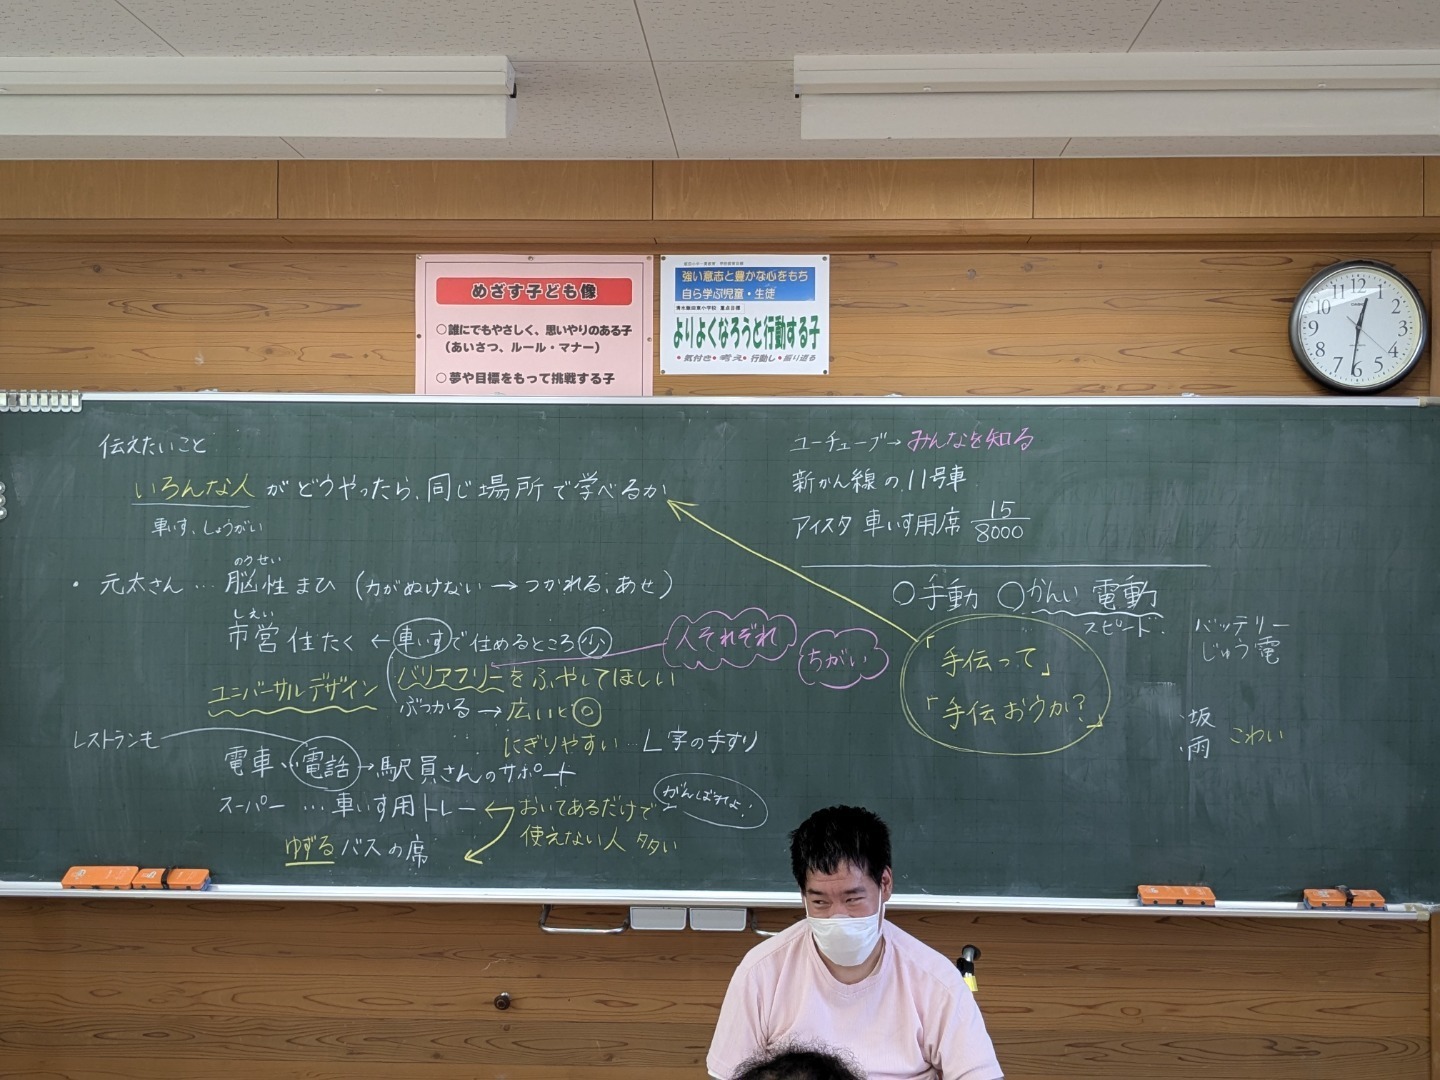 めざす子ども像
○誰にでもやさしく、思いやりのある子
(あいさつ、ルール・マナー)
○夢や目標をもって挑戦する子
強い意志と豊かな心をもち
自ら学ぶ児童・生徒
よりよくなろうと行動する子
•気付き•考え•行動し•振り返る
12 1 2 3 4 5 6 7 8 9 10 11
伝えたいこと
いろんな人がどうやったら、同じ場所で学べるか
車いす、しょうがい
のうせい
・元太さん…脳性まひ(力がぬけない→つかれる、あせ)
しえい
市営住たく←車いすで住めるところ少
人それぞれ
ちがい
バリアフリーをふやしてほしい
ユニバーサルデザイン
ぶつかる→広いと◎
にぎりやすい…L字の手すり
レストランも
電車…電話→駅員さんのサポート
スーパー…車いす用トレー
おいてあるだけで
使えない人 多い
がんばれよ!
ゆずるバスの席
ユーチューブ→みんなを知る
新かん線の11号車
アイスタ 車いす用席 15/8000
○手動 ○かんい電動
スピード
「手伝って」
「手伝おうか?」
バッテリー
じゅう電
坂
雨
こわい